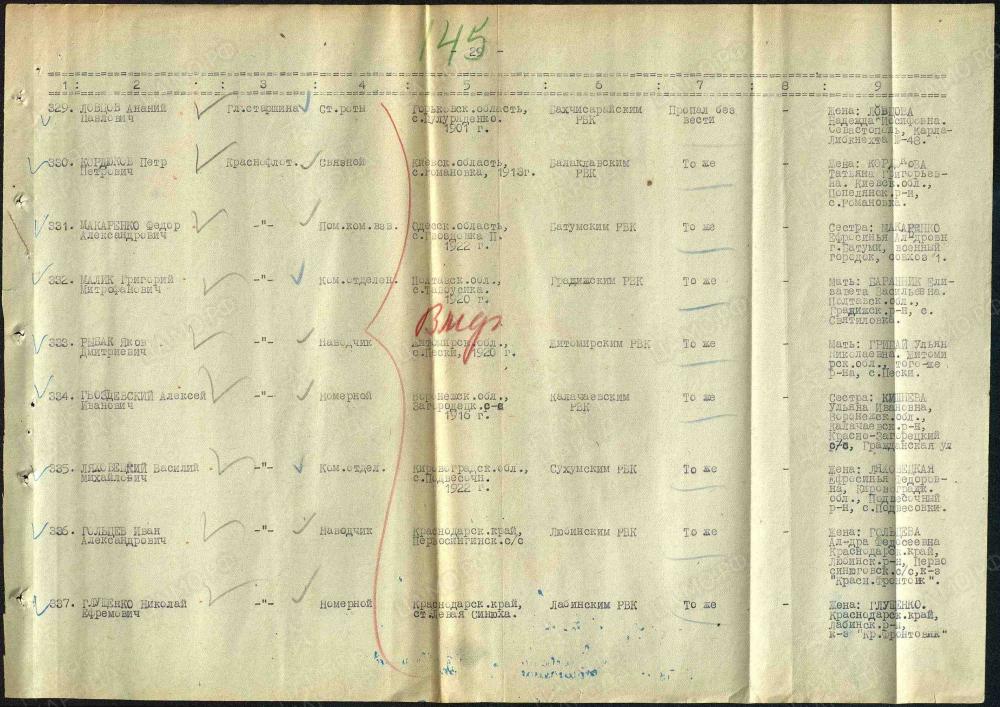 145
- 29 -
1 : 2 : 3 : 4 : 5 : 6 : 7 : 8 : 9
329. ЛОВЦОВ Ананий Гл.старшина Ст.роты Горьковск.область, Бахчисарайским Пропал без - Жена: ЛОВЦОВА
Павлович РВК вести Надежда Иосифовна.
1901 г. Севастополь, Карла-
Либкнехта №-48.
330. Петр Краснофлот. Связной Киевск.область, Балаклавским То же - Жена:
Петрович с.Романовка, 1913г. РВК Татьяна Григорьев-
на. Киевск.обл.,
Попелянск.р-н,
с.Романовка.
331. МАКАРЕНКО Федор -"- Пом.ком.взв. Одесск.область, Батумским РВК То же - Сестра: МАКАРЕНКО
Александрович Ефросинья Ал-дровн
1922 г. г.Батуми, военный
городок, совхоз 1.
332. МАЛИК Григорий -"- Ком.отделен. Полтавск.обл., Градижским РВК То же - Мать: БАРАННИК Ели-
Митрофанович завета Васильевна.
1920 г. Полтавск.обл.,
Градижск.р-н, с.
Святиловка.
333. РЫБАК Яков -"- Наводчик Житомирск.обл., Житомирским РВК То же - Мать: Ульян
Дмитриевич с.Пески, 1920 г. Николаевна. Житоми
рск.обл., того-же
р-на, с.Пески.
334. ГВОЗДЕВСКИЙ Алексей -"- Номерной Воронежск.обл., Калачаевским То же - Сестра:
Иванович Загородецк.с-с РВК Ульяна Ивановна,
1916 г. Воронежск.обл.,
Калачаевск.р-н,
Красно-Загорецкий
с/с, Гражданская ул
335. ЛЯХОВЕЦКИЙ Василий -"- Ком.отдел. Кировоградск.обл., Сухумским РВК То же - Жена: ЛЯХОВЕЦКАЯ
Михайлович с.Подвесочн. Ефросинья Федоров-
1922 г. на, Кировоградк.
обл., Подвесочный
р-н, с.Подвесовки.
336. ГОЛЬЦЕВ Иван -"- Наводчик Краснодарск.край, Любинским РВК То же - Жена: ГОЛЬЦЕВА
Александрович Первосингинск.с/с Ал-дра Федосеевна
Краснодарск.край,
Любинск.р-н, Перво
синюговск.с/с,к-з
"Красн.Фронтовик".
337. ГЛУЩЕНКО Николай -"- Номерной Краснодарск.край, Лабинским РВК То же - Жена: ГЛУЩЕНКО.
Ефремович ст.Левая Синюха. Краснодарск.край,
Лабинск.р-н,
к-з "Кр.Фронтовик"